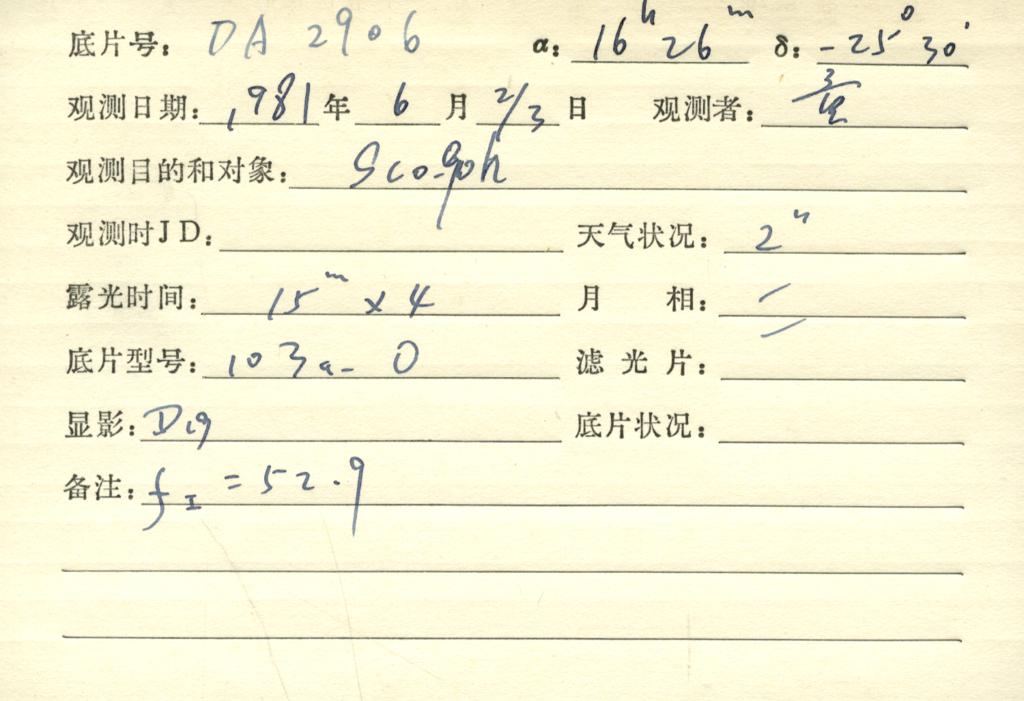 底片号: DA 2906 α: 16ʰ 26ᵐ δ: -25° 30′
观测日期: 1981年 6 月 2/3 日 观测者:
观测目的和对象: Sco-Oph
观测时JD: 天气状况: 2"
露光时间: 15ᵐ × 4 月 相:
底片型号: 103a-O 滤光片:
显影: D19 底片状况:
备注: f_I = 52.9